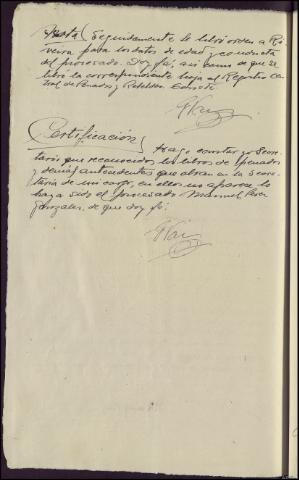 Nota) Seguidamente se libró orden a Ri-
veira para los datos de edad y conducta
del procesado. Doy fé, asi como de que se
libró la correspondiente hoja al Registro Cen-
tral de Penados y Rebeldes.
Certificación) Hago constar yo Secre-
tario que reconocidos los libros de penados
y demás antecedentes que obran en la Secre-
taria de mi cargo, en ellos no aparece lo
haya sido el procesado Manuel
Gonzalez, de que doy fé.